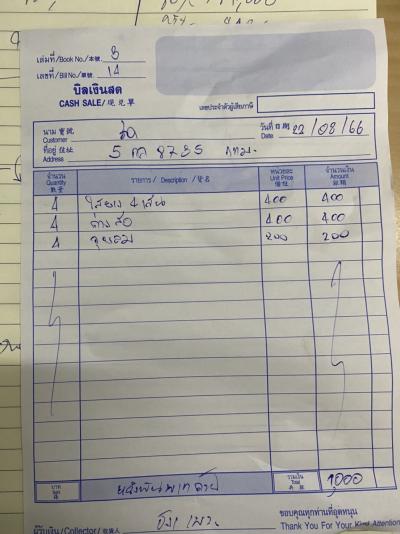 เล่มที่/Book No./本號 8
เลขที่/Bill No./單號 14
บิลเงินสด
CASH SALE/現 兌 單
เลขประจำตัวผู้เสียภาษี
นาม 寶號
Customer
วันที่ 日期 22/08/66
Date
ที่อยู่ 住址 5 กฎ 8785 กทม.
Address
จำนวน รายการ / Description / 貨名 หน่วยละ จำนวนเงิน
Quantity Unit Price Amount
數量 價位 銀額
4 ใส่ยาง 4 เส้น 400 400
4 ถ่วงล้อ 400 400
4 จุ๊บลม 200 200
บาท
Baht
รวมเงิน
Total 1,000
ผู้รับเงิน/Collector/收款人
ขอบคุณทุกท่านที่อุดหนุน
Thank You For Your Kind Attention